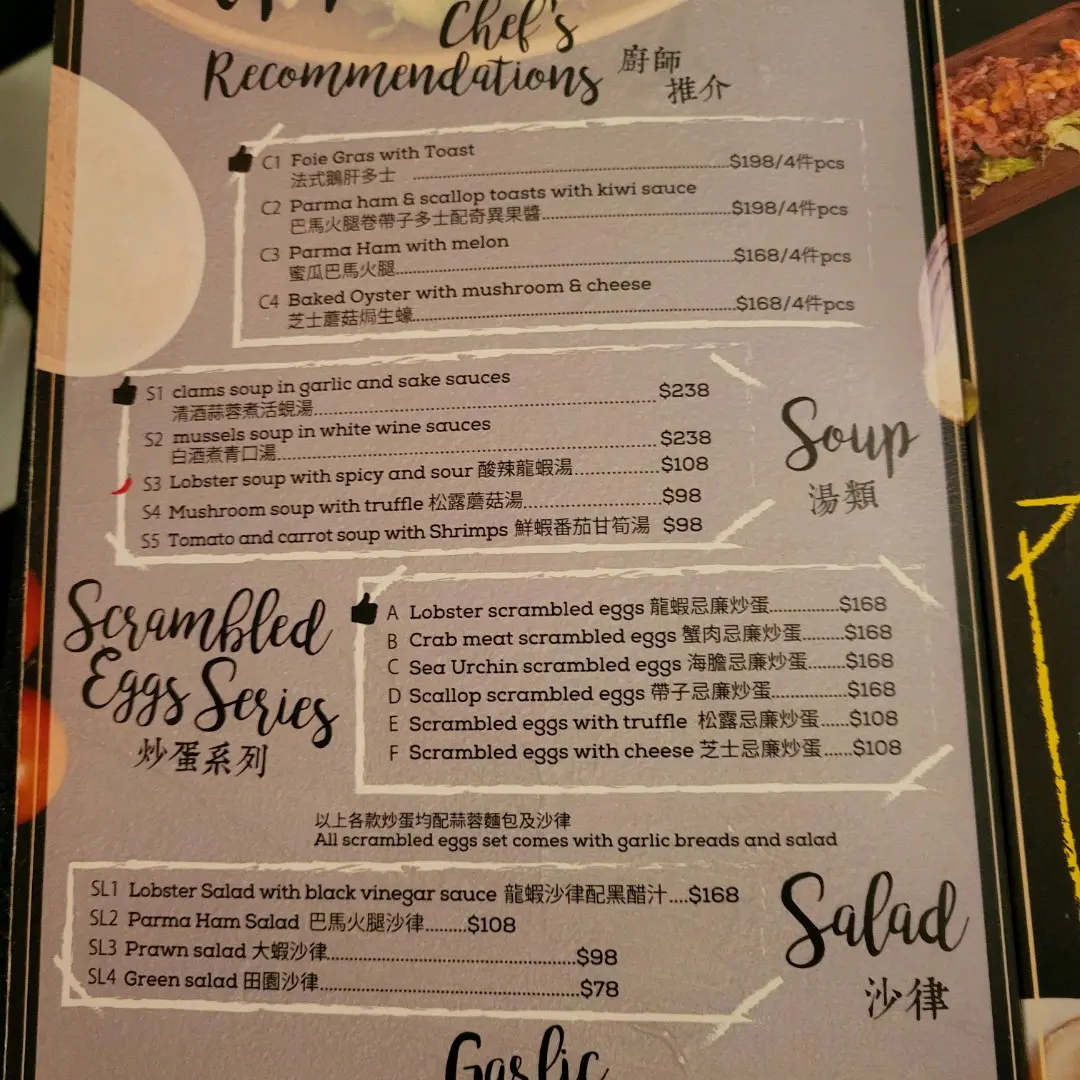 Chef's
Recommendations 廚師
推介
C1 Foie Gras with Toast
法式鵝肝多士 ........$198/4件pcs
C2 Parma ham & scallop toasts with kiwi sauce
巴馬火腿卷帶子多士配奇異果醬........$198/4件pcs
C3 Parma Ham with melon
蜜瓜巴馬火腿........$168/4件pcs
C4 Baked Oyster with mushroom & cheese
芝士蘑菇焗生蠔........$168/4件pcs
S1 clams soup in garlic and sake sauces
清酒蒜蓉煮活蜆湯........$238
S2 mussels soup in white wine sauces
白酒煮青口湯........$238
S3 Lobster soup with spicy and sour 酸辣龍蝦湯........$108
S4 Mushroom soup with truffle 松露蘑菇湯........$98
S5 Tomato and carrot soup with Shrimps 鮮蝦番茄甘筍湯 $98
Soup
湯類
Scrambled
Eggs Series
炒蛋系列
A Lobster scrambled eggs 龍蝦忌廉炒蛋........$168
B Crab meat scrambled eggs 蟹肉忌廉炒蛋........$168
C Sea Urchin scrambled eggs 海膽忌廉炒蛋........$168
D Scallop scrambled eggs 帶子忌廉炒蛋........$168
E Scrambled eggs with truffle 松露忌廉炒蛋......$108
F Scrambled eggs with cheese 芝士忌廉炒蛋......$108
以上各款炒蛋均配蒜蓉麵包及沙律
All scrambled eggs set comes with garlic breads and salad
SL1 Lobster Salad with black vinegar sauce 龍蝦沙律配黑醋汁....$168
SL2 Parma Ham Salad 巴馬火腿沙律.........$108
SL3 Prawn salad 大蝦沙律........$98
SL4 Green salad 田園沙律........$78
Salad
沙律
Garlic